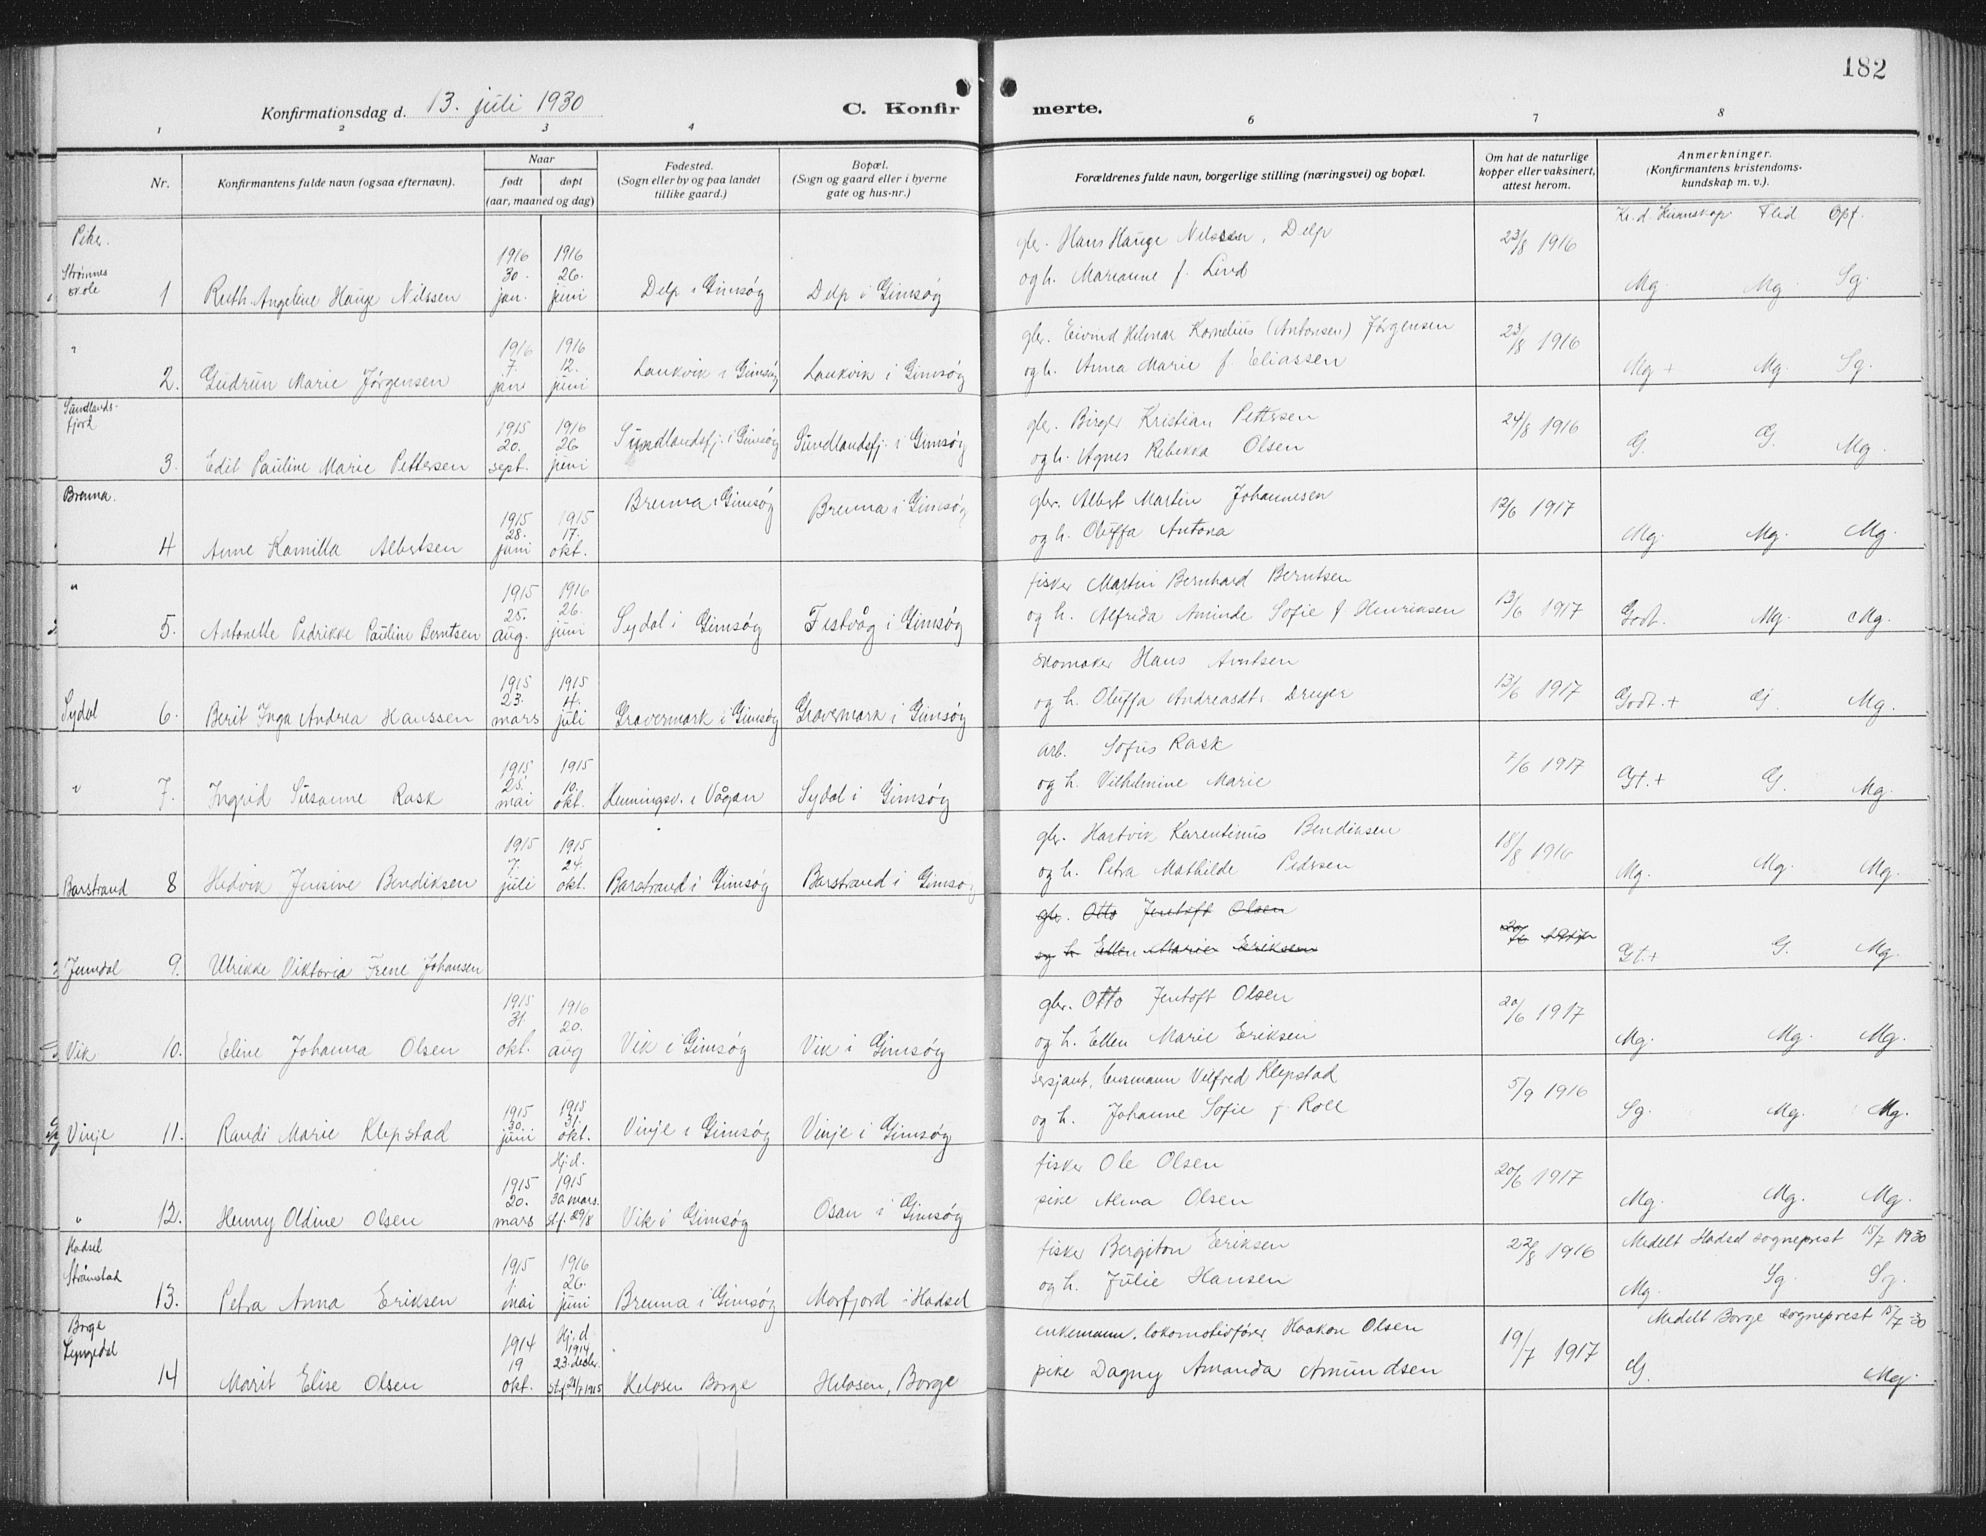 182
Konfirmationsdag d. 13. juli 1930
C. Konfir merte.
1 2 3 4 6 7 8
Nr.
Konfirmantens fulde navn (ogsaa efternavn).
Naar
født døpt
(aar, maaned og dag)
Fødested.
(Sogn eller by og paa landet
tillike gaard.)
Bopæl.
(Sogn og gaard eller i byerne
gate og hus-nr.)
Forældrenes fulde navn, borgerlige stilling (næringsvei) og bopæl.
Om hat de naturlige
kopper eller vaksinert,
attest herom.
Anmerkninger.
(Konfirmantens kristendoms-
kundskap m. v.).
Kr.d. Kunnskap Flid Opf.
Piker.
Strømnes
skole
1 Ruth Angeline Hauge Nilssen
1916 30. jan.
1916 26. juni
Delp i Gimsøy
Delp i Gimsøy
gbr. Hans Hauge Nilssen, Delp
og h. Marianne f. Lind
23/8 1916
Mg. Mg. Sg.
"
2. Gudrun Marie Jørgensen
1916 7. jan
1916 12. juni
Laukvik i Gimsøy
Laukvik i Gimsøy
gbr. Eivind Helmar Kornelius (Antonsen) Jørgensen
og h. Anna Marie f. Eliassen
23/8 1916
Mg + Mg. Sg.
Sundlands-
fjord
3. Edit Pauline Marie Pettersen
1915 20. sept.
1916 26 juni
Sundlandsfj. i Gimsøy
Sundlandsfj. i Gimsøy
gbr. Birger Kristian Pettersen
og h. Agnes Rebekka Olsen
24/8 1916
G. G. Mg.
Brenna.
4 Anne Kamilla Albertsen
1915 28. juni
1915 17. okt.
Brenna i Gimsøy
Brenna i Gimsøy
gbr. Albert Martin Johannesen
og h. Oluffa Antona
12/6 1917
Mg. Mg. Mg.
"
5. Antonette Pedrikke Pauline Berntsen
1915 25. aug.
1916 26. juni
Sydal i Gimsøy
Festvåg i Gimsøy
fisker Martin Bernhard Berntsen
og h. Alfrida Aminde Sofie f. Henriksen
13/6 1917
Godt. Mg. Mg.
Sydal
6. Berit Inga Andrea Hanssen
1915 23. mars
1915 4. juli
Gravermark i Gimsøy
Gravermark i Gimsøy
skomaker Hans Arntsen
og h. Oluffa Andreasdt. Dreyer
13/6 1917
Godt. + G. Mg.
"
7. Ingrid Susanne Rask
1915 25. mai
1915 10. okt.
Henningsv. i Vågan
Sydal i Gimsøy
arb. Sofus Rask
og h. Vilhelmine Marie
7/6 1917
Gt. + G. Mg.
Barstrand
8 Hedvik Jensine Bendiksen
1915 7. juli
1915 24. okt.
Barstrand i Gimsøy
Barstrand i Gimsøy
gbr. Hartvik Karentinus Bendiksen
og h. Petra Mathilde Pedersen
18/8 1916
Mg. Mg. Mg.
Jenndal
9. Ulrikke Viktoria Irene Johansen
gbr. Otto Jentoft Olsen
og h. Ellen Marie Eriksen
20/6 1917
Gt. + G. Mg.
Vik
10. Eline Johanna Olsen
1915 31. okt.
1916 20. aug
Vik i Gimsøy
Vik i Gimsøy
gbr. Otto Jentoft Olsen
og h. Ellen Marie Eriksen
20/6 1917
Mg. Mg. Mg.
Vinje
11. Randi Marie Klepstad
1915 30. juni
1915 31. okt.
Vinje i Gimsøy
Vinje i Gimsøy
sersjant, lensmann Vilfred Klepstad
og h. Johanne Sofie f. Roll
5/9 1916
Sg. Mg. Mg.
"
12. Henny Oldine Olsen
1915 20. mars
Hj.d. 1915 30 mars. stf. 29/8
Vik i Gimsøy
Osan i Gimsøy
fisker Ole Olsen
pike Alma Olsen
20/6 1917
Mg. Mg. Mg.
Hadsel
Strønstad
13. Petra Anna Eriksen
1915 1. mai
1916 26. juni
Brenna i Gimsøy
Morfjord i Hadsel
fisker Bergiton Eriksen
og h. Julie Hansen
22/8 1916
Medelt Hadsel sogneprest 15/7 1930
Mg. Sg. Sg.
Borge
Lyngedal
14 Marit Elise Olsen
1914 19 okt.
Hj. d 1914 23. decbr. stf. 21/7 1915
Helosen Borge
Helosen, Borge
enkemann, lokomotivfører Haakon Olsen
pike Dagny Amanda Amundsen
19/7 1917
Medelt Borge sogneprest 15/7 30
G. Mg.